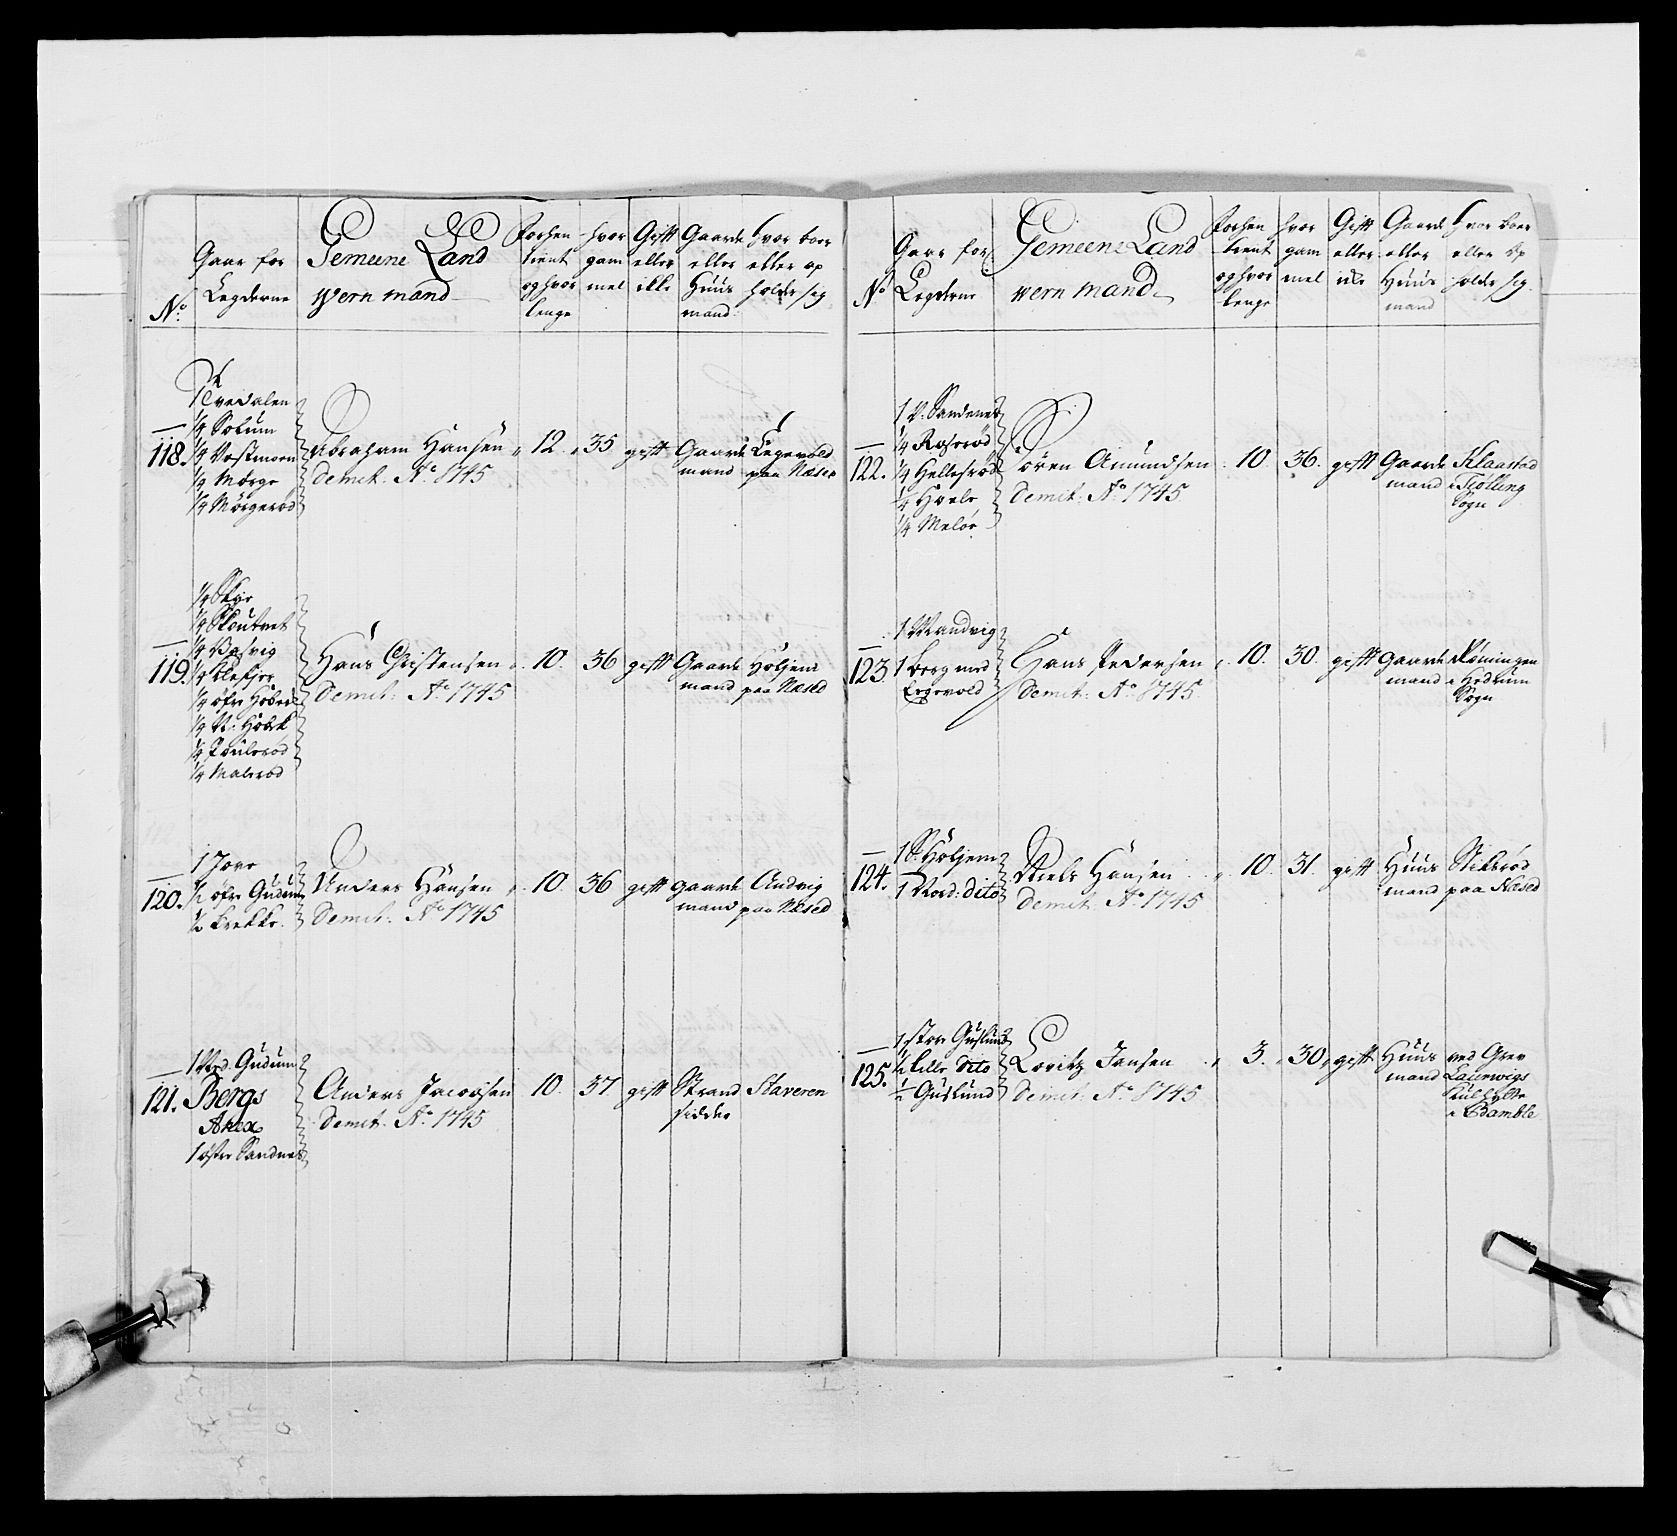 No:
Gaar for
Legderne
Gemeene Land
wern mand
Forhen
tient
og hvor
lenge
hvor
gam
mel
Gift
eller
ikke
Gaarde
eller
Huus
mand
hvor boer
eller op
holder sig
118.
1 Tvedalen
1/4 Solum
1/4 Vestmoen
1/4 Mørge
1/4 Mørgerød
Abraham Hansen
demit: Ao 1745
12.
35
gift
Gaarde
mand
Legevold
paa Næset
119.
1/4 Skye
1/4
1/4
1/4
1/4 øfre
1/4 N:
1/4 Poulerød
1/4 Malerød
Hans Christensen
demit: Ao 1745
10.
36
gift
Gaarde
mand
Holjem
paa Næsed
120.
1
1/2 øfre Gudum
1/2
Anders Hansen
demit: Ao 1745
10.
36
gift
gaarde
mand
Andvig
paa Næsed
121.
1 Ned. Gudum
Bergs
1 øster Sandnes
Anders Jacobsen
demit: Ao 1745
10.
37
gift
Strand
sidder
Staveren
No
Gaar for
Legderne
Gemeene Land
wern mand
Forhen
tient
og hvor
lenge
hvor
gam
mel
Gift
eller
ikke
Gaarde
eller
Huus
mand
hvor boer
eller op
holder sig.
122.
1 V: Sandnes
1/4
1/4 Hellesrød
1/4
1/4 Meløe
Sören Amundsen
demit: Ao 1745
10.
36.
gift
Gaarde
mand
Klaastad
i Tiølling
Sogn
123
1
1 Berg med
Hans Pedersen
demit: Ao 1745
10.
30.
gift
gaarde
mand
i Hedrum
Sogn
124.
1 S: Holjem
1 Nord: dito
Niels Hansen
demit: Ao 1745
10.
31.
gift
Huus
mand
paa Næsed
125.
1 store Guslund
1/2 lille dito
1/2 Guslund
Loritz Jansen
demit: Ao 1745
3.
30.
gift
Huus
mand
ved Grev
Laurwigs
i Bamble